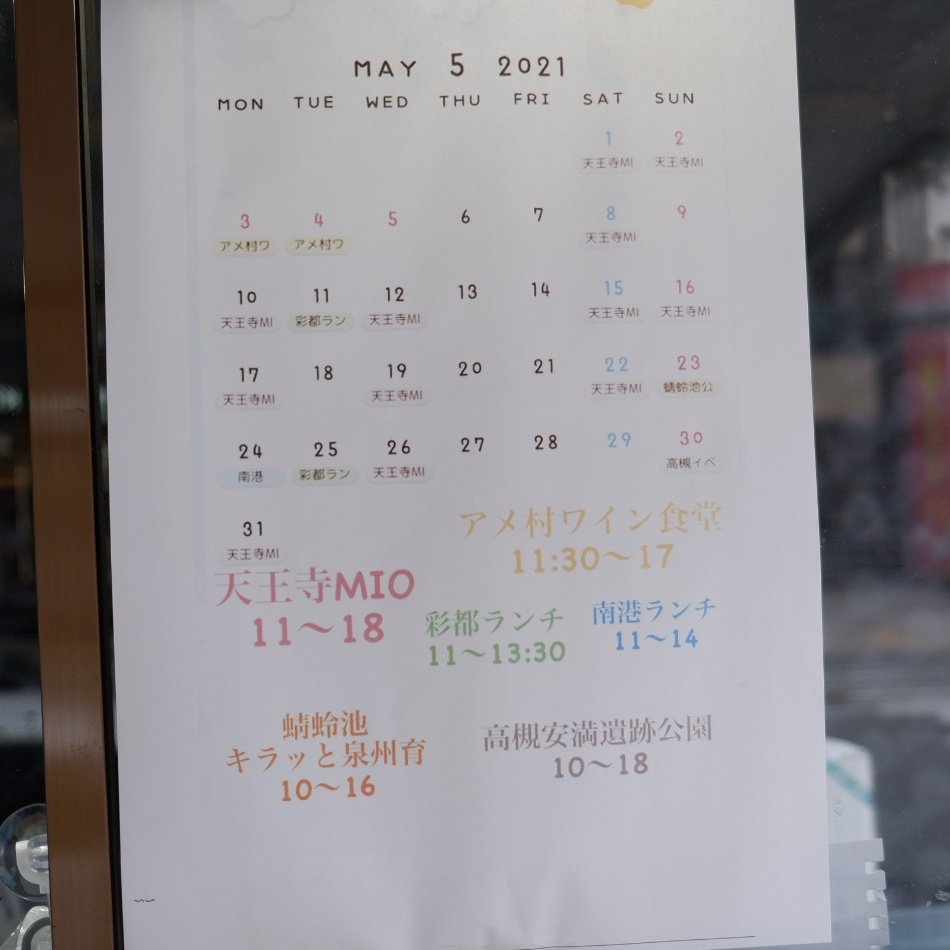 MAY 5 2021
MON TUE WED THU FRI SAT SUN
1 2
天王寺MI 天王寺MI
3 4 5 6 7 8 9
アメ村ワ アメ村ワ 天王寺MI
10 11 12 13 14 15 16
天王寺MI 彩都ラン 天王寺MI 天王寺MI 天王寺MI
17 18 19 20 21 22 23
天王寺MI 天王寺MI 天王寺MI 蜻蛉池公
24 25 26 27 28 29 30
南港 彩都ラン 天王寺MI 高槻イベ
31
天王寺MI
アメ村ワイン食堂
11:30〜17
天王寺MIO
11〜18
彩都ランチ
11〜13:30
南港ランチ
11〜14
蜻蛉池
キラッと泉州育
10〜16
高槻安満遺跡公園
10〜18